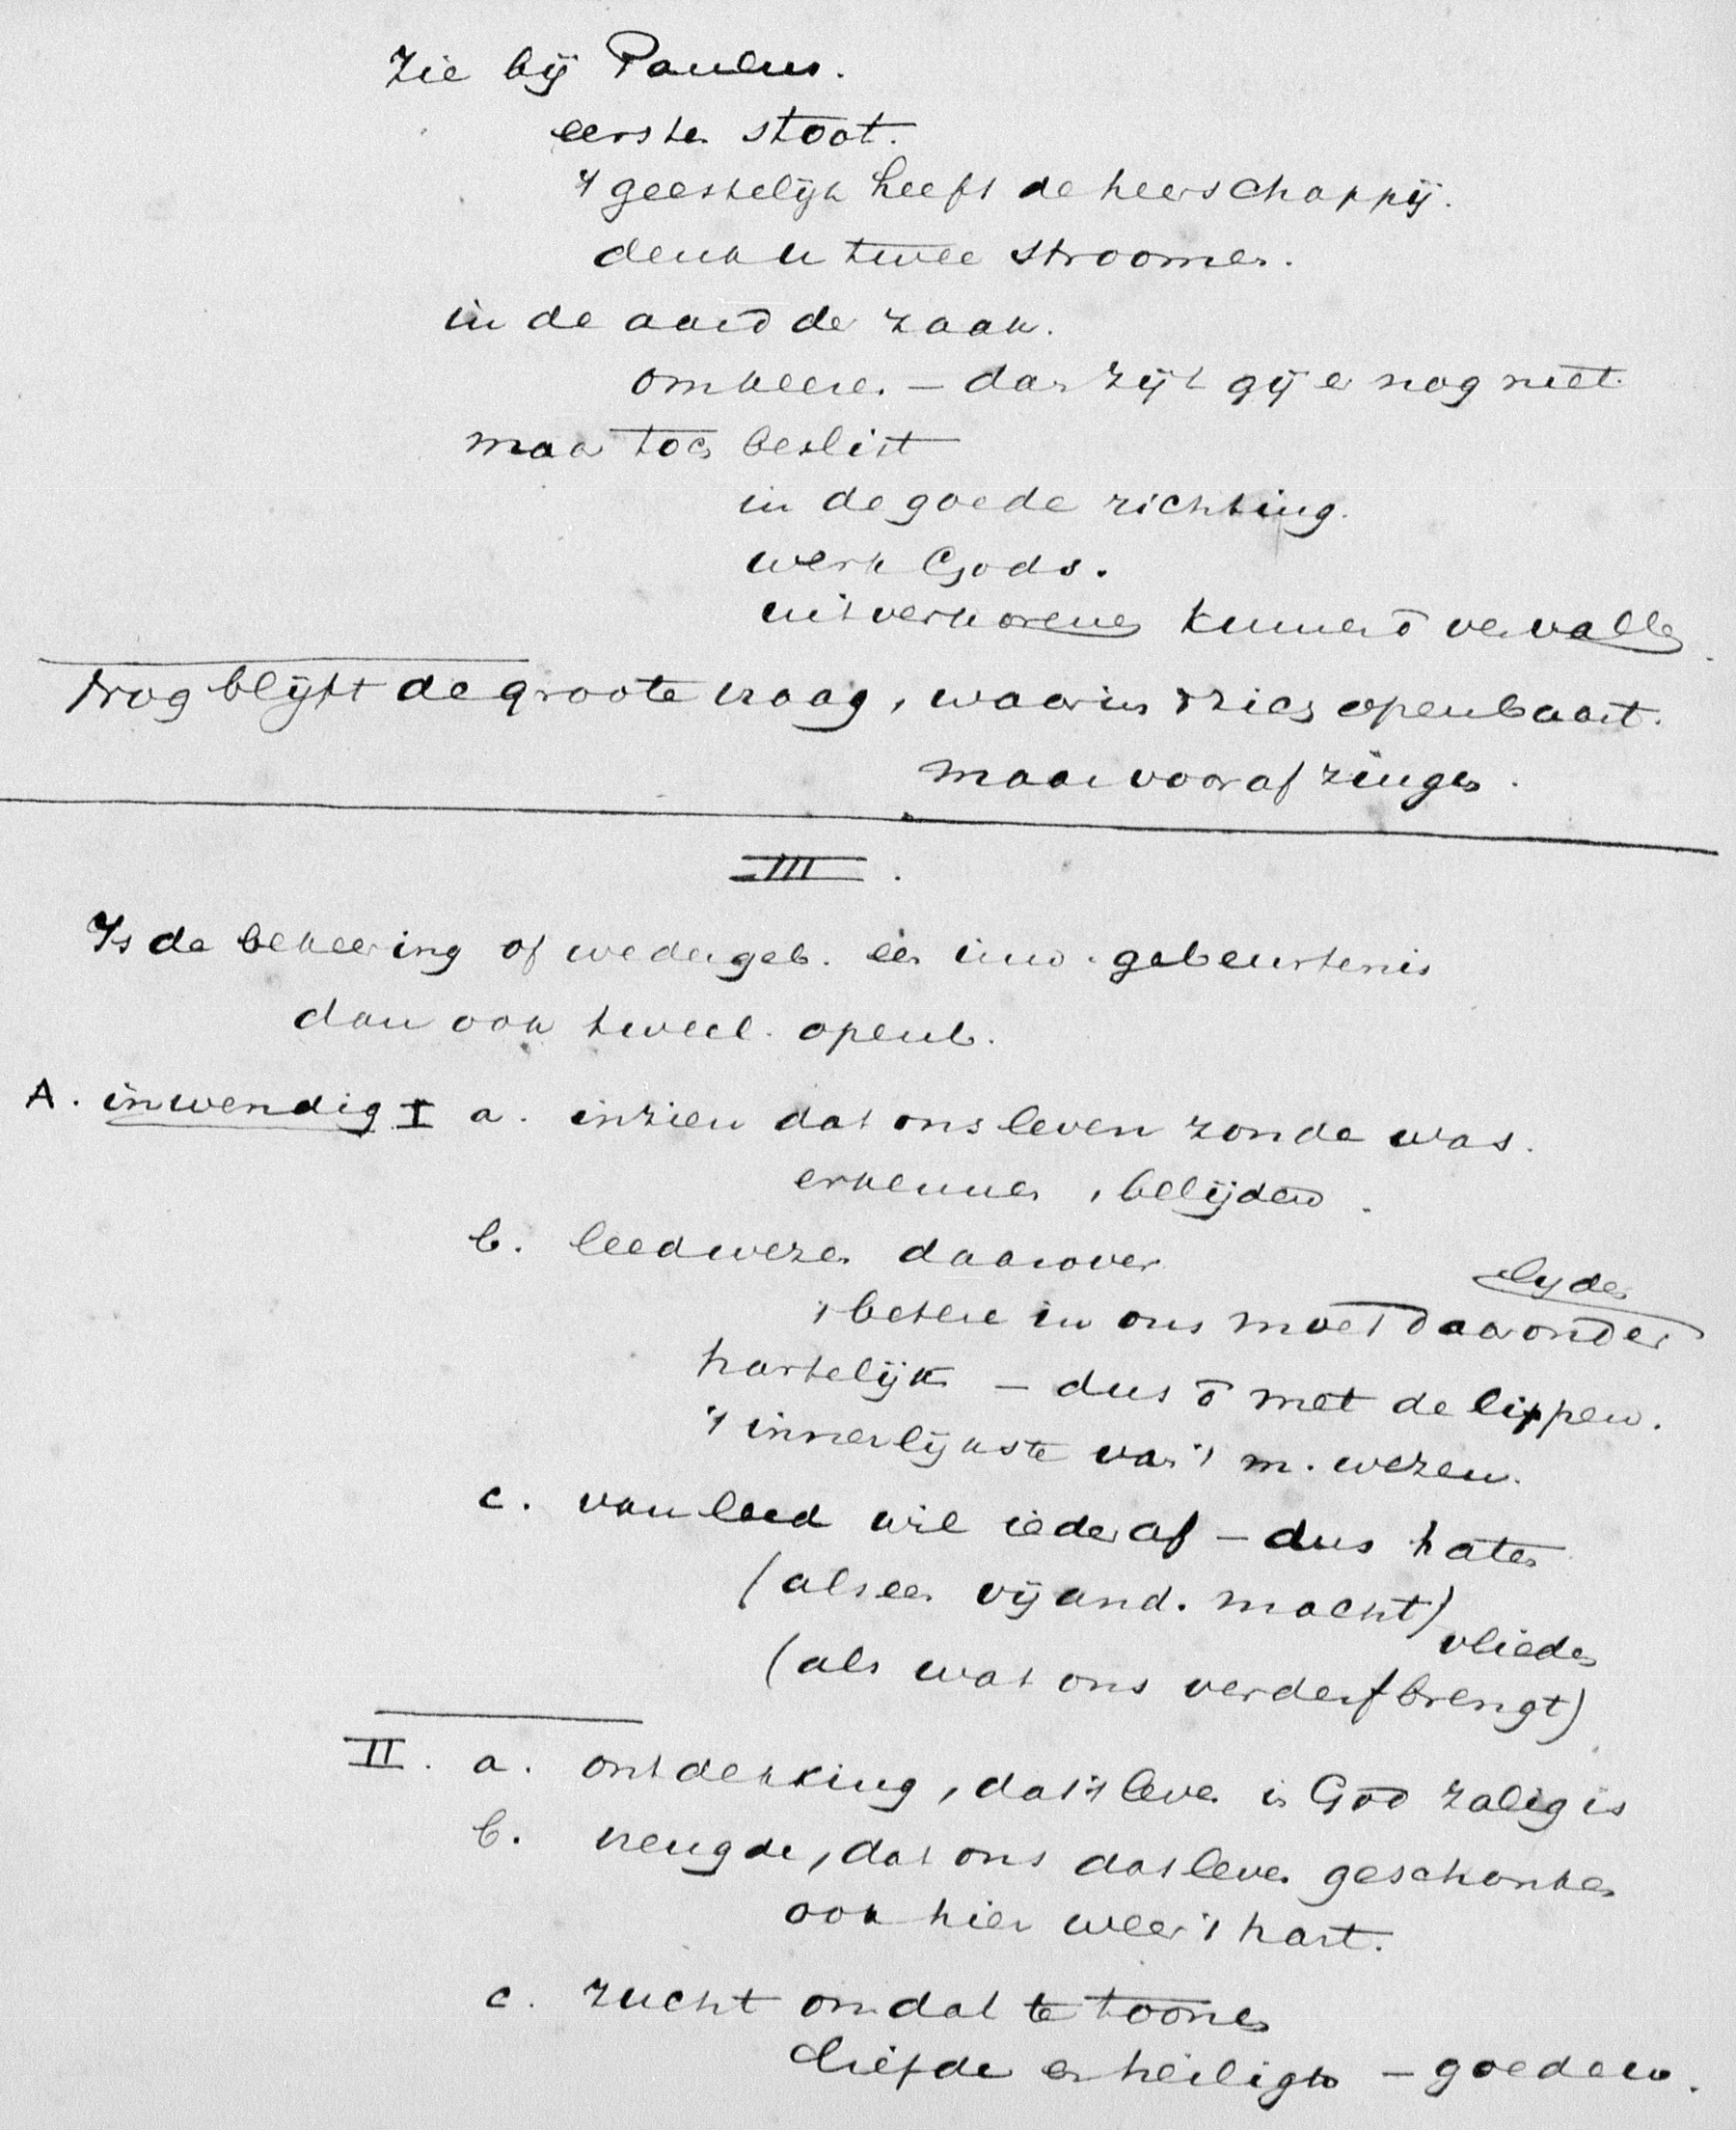 Zie bij Paulus.
eerste stoot.
't geestelijk heeft de heerschappij.
denk u twee stroomen.
in de aard der zaak.
omkeeren – dan zijt gij er nog niet.
maar toch beslist
in de goede richting.
werk Gods.
uitverkorenen kunnen ō vervallen.
Nog blijft de groote vraag, waarin 't zich openbaart.
maar vooraf zingen.
III.
Is de bekeering of wedergeb. een inw. gebeurtenis
dan ook tweel. openb.
A. inwendig I a. inzien dat ons leven zonde was.
erkennen, belijden.
b. leedwezen daarover
lyden
't betere in ons moet daaronder
hartelijk – dus ō met de lippen.
't innerlijkste van 't m. wezen.
c. van leed wil ieder af – dus haten
(als een vijand. macht)
vlieden
(als wat ons verderf brengt)
II. a. ontdekking, dat 't leven in God zalig is
b. vreugde, dat ons dat leven geschonken
ook hier weer 't hart.
c. zucht om dat te toonen
liefde en heiligh – goede w.